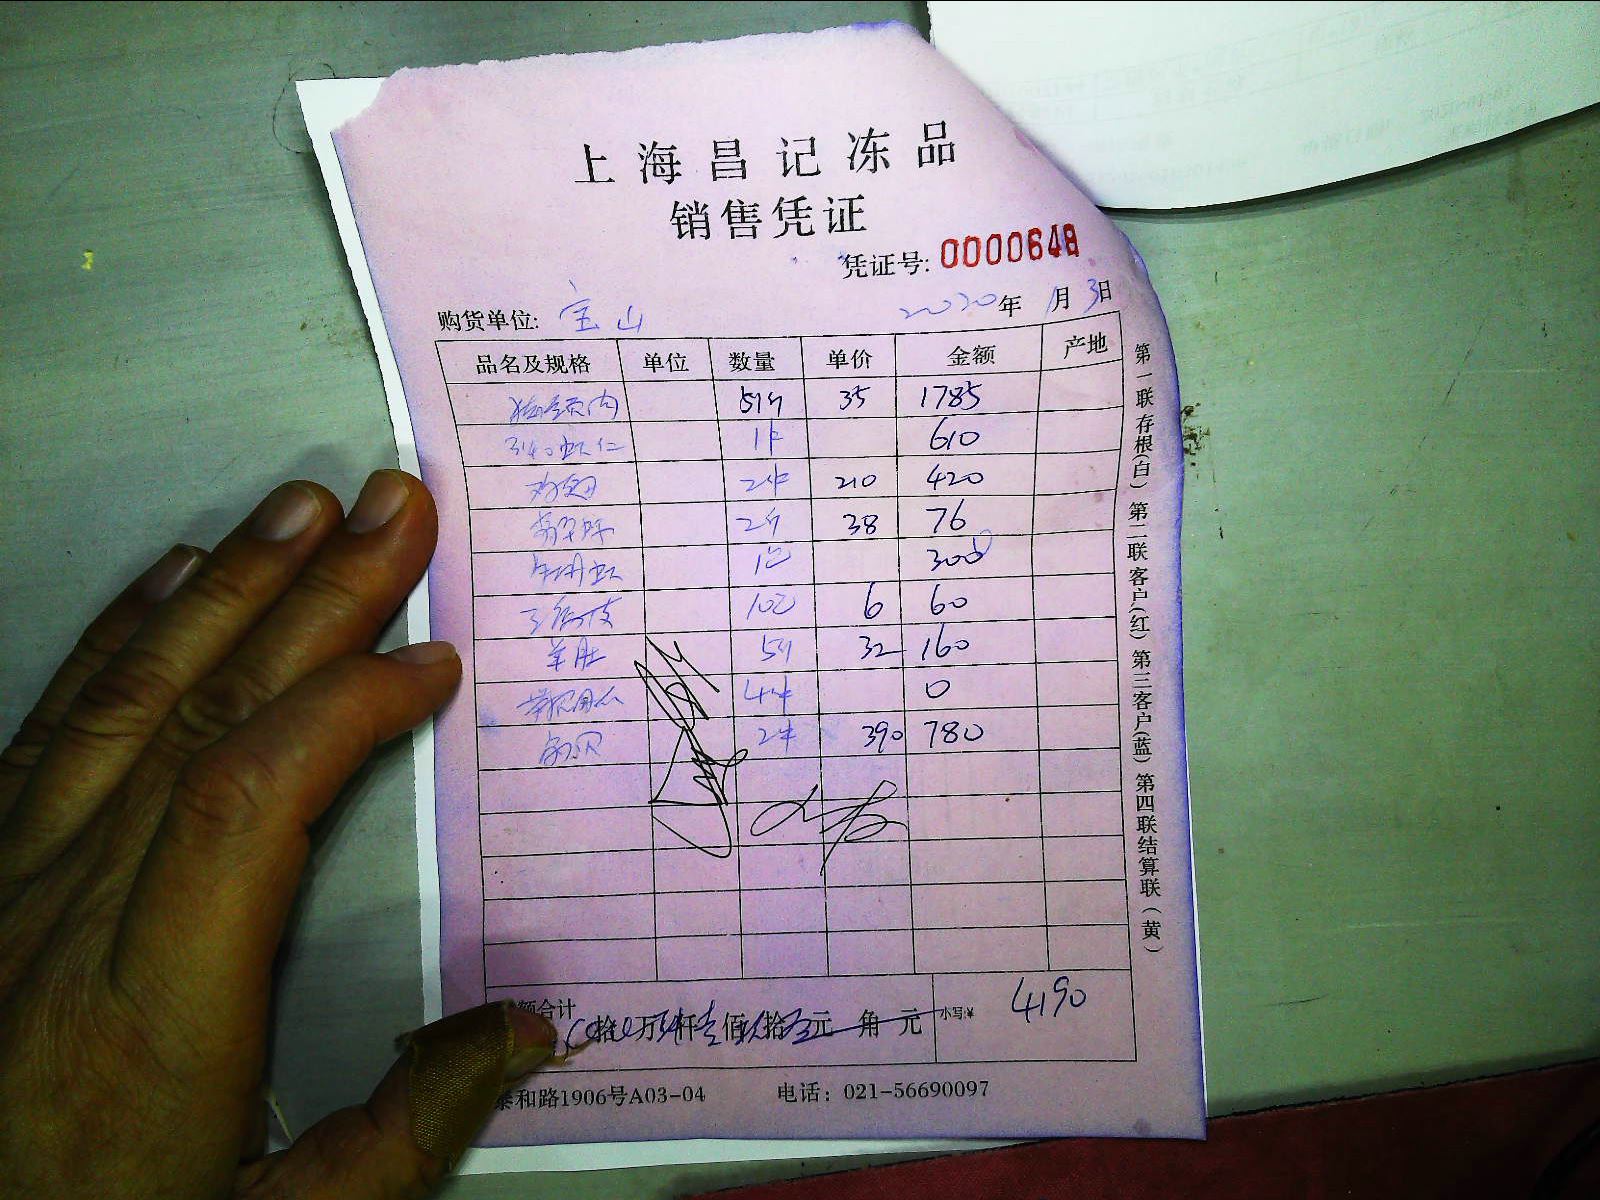 上海昌记冻品
销售凭证
凭证号: 0000648
购货单位: 宝山 2020年 1月 3日
品名及规格 单位 数量 单价 金额 产地
51斤 35 1785
3140虾仁 1件 610
鸡翅 2件 210 420
2斤 38 76
1包 300
10包 6 60
羊肚 5斤 32 160
4件 0
扇贝 2件 390 780
额合计 拾 万 仟 壹 佰 玖 拾 元 角 元 小写:¥ 4190
泰和路1906号A03-04 电话: 021-56690097
第一联存根(白) 第二联客户(红) 第三客户(蓝) 第四联结算联(黄)